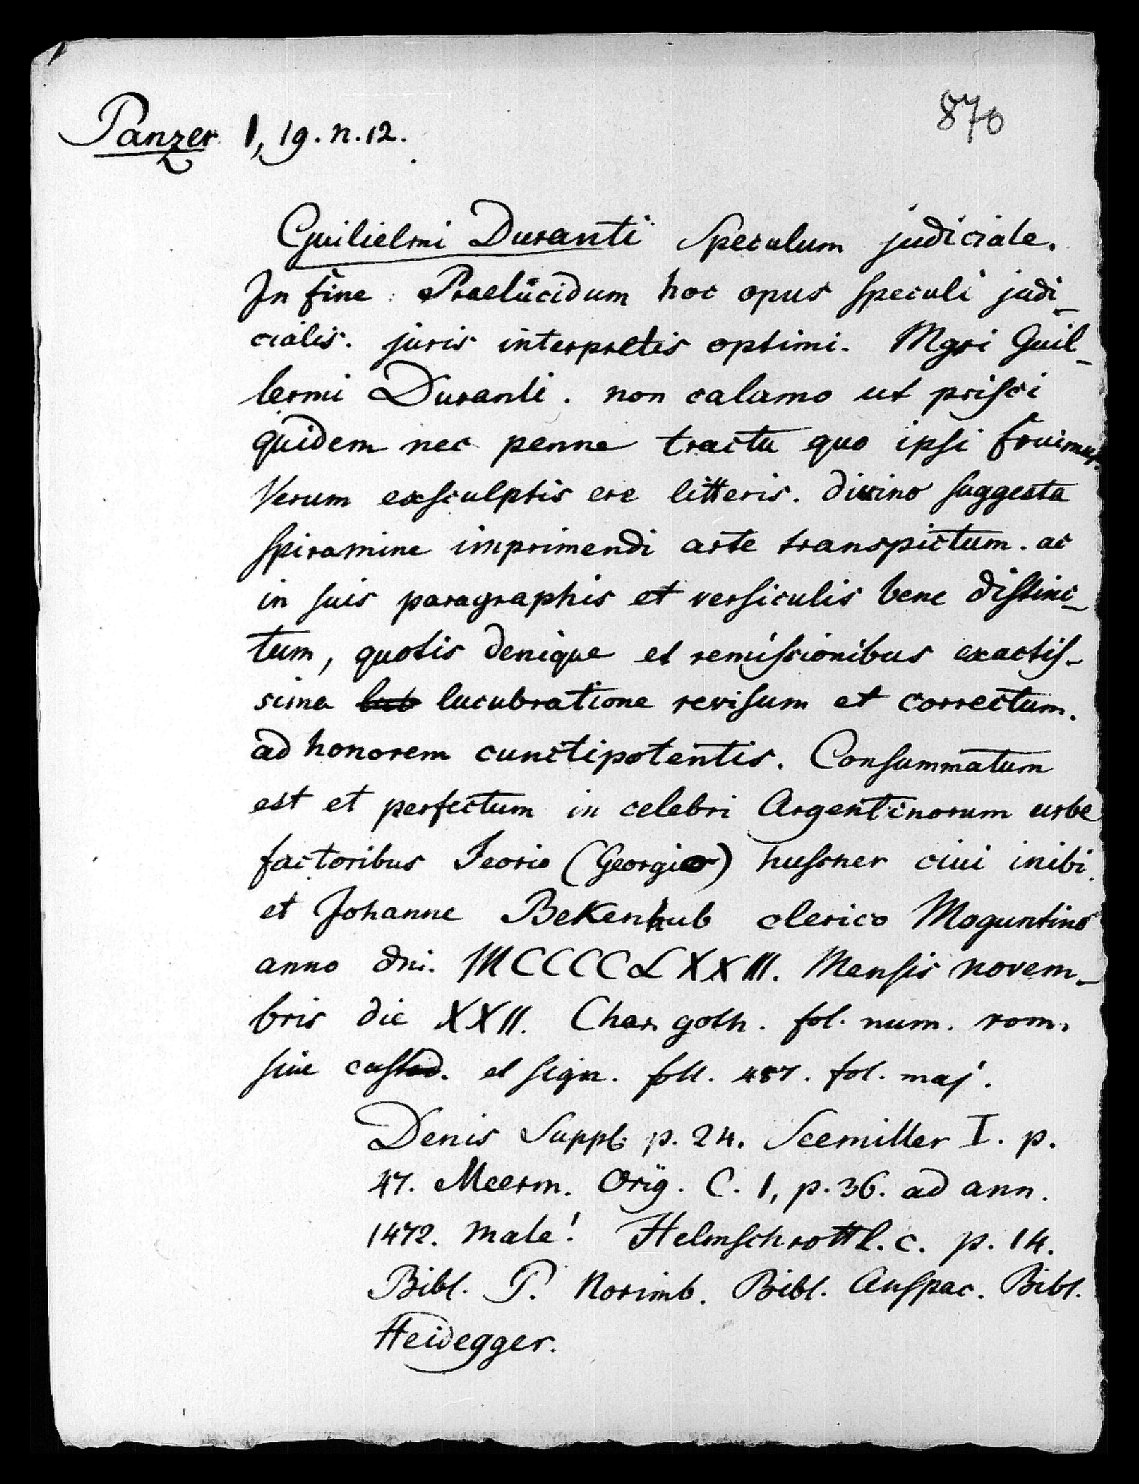 870
Panzer I, 19. n. 12.
Guilielmi Duranti Speculum judiciale.
In fine: Praelucidum hoc opus speculi judi-
cialis. juris interpretis optimi. Mgri Guil-
lermi Duranti. non calamo ut prisci
quidem nec penne tractu quo ipsi fruimur.
Verum exsculptis ere litteris. divino suggesta
spiramine imprimendi arte transpictum. ac
in suis paragraphis et versiculis bene distinc-
tum, quotis denique et remissionibus exactis-
sima lub lucubratione revisum et correctum.
ad honorem cunctipotentis. Consummatum
est et perfectum in celebri Argentinorum urbe
factoribus Jeorio (Georgio) husner ciui inibi.
et Johanne Bekenhub clerico Moguntino
anno dni. MCCCCLXXIII. Mensis novem-
bris die XXII. Char. goth. fol. num. rom.
sine custod. et sign. foll. 487. fol. maj.
Denis Suppl. p. 24. Seemiller I. p.
47. Meerm. Orig. C. 1, p. 36. ad ann.
1472. male! Helmschrott l. c. p. 14.
Bibl. P. Norimb. Bibl. Anspac. Bibl.
Heidegger.